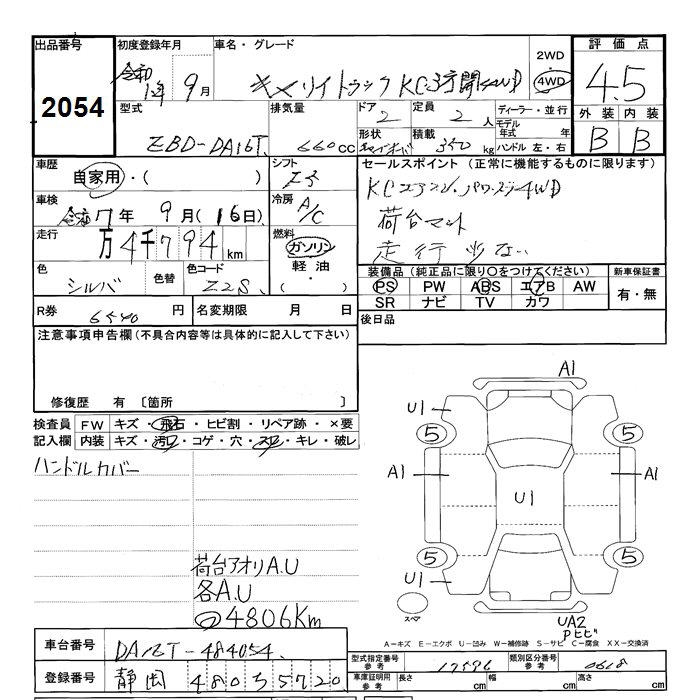 出品番号 初度登録年月 車名・グレード 2WD 評価点
2054 令和 1年 9月 キャリイトラック KC3方開4WD 4WD 4.5
型式 排気量 ドア 定員 ディーラー・並行 外装 内装
EBD-DA16T 660CC 2 2人 モデル年式 年 B B
形状 積載 350kg ハンドル 左・右
車歴 シフト セールスポイント(正常に機能するものに限ります)
自家用・( ) KCエアコン、パワステ4WD
車検 冷房
令和7年 9月(16日) A/C 荷台マット
走行 燃料 走行少ない
万4千794km ガソリン
色 色替 色コード 軽油・ 装備品(純正品に限り○をつけてください) 新車保証書
シルバ Z2S ・( ) PS PW ABS エアB AW 有・無
SR ナビ TV カワ
R券 円 名変期限 月 日 後日品
注意事項申告欄(不具合内容等は具体的に記入して下さい)
修復歴 有 〔箇所 〕
検査員 FW キズ・飛石・ヒビ割・リペア跡・×要
記入欄 内装 キズ・汚れ・コゲ・穴・スレ・キレ・破レ
ハンドルカバー
A1
U1
5 5
A1 A1
U1
5 5
U1
スペア
荷台アオリA.U
各A.U
4806Km
UA2
Pヒビ
A-キズ E-エクボ U-凹み W-補修跡 S-サビ C-腐食 XX-交換済
車台番号 DA16T-484054
登録番号 静岡 480 5720
型式指定番号 参考 17596 類別区分番号 参考 0618
車庫証明用 参考 長さ cm 幅 cm 高さ cm